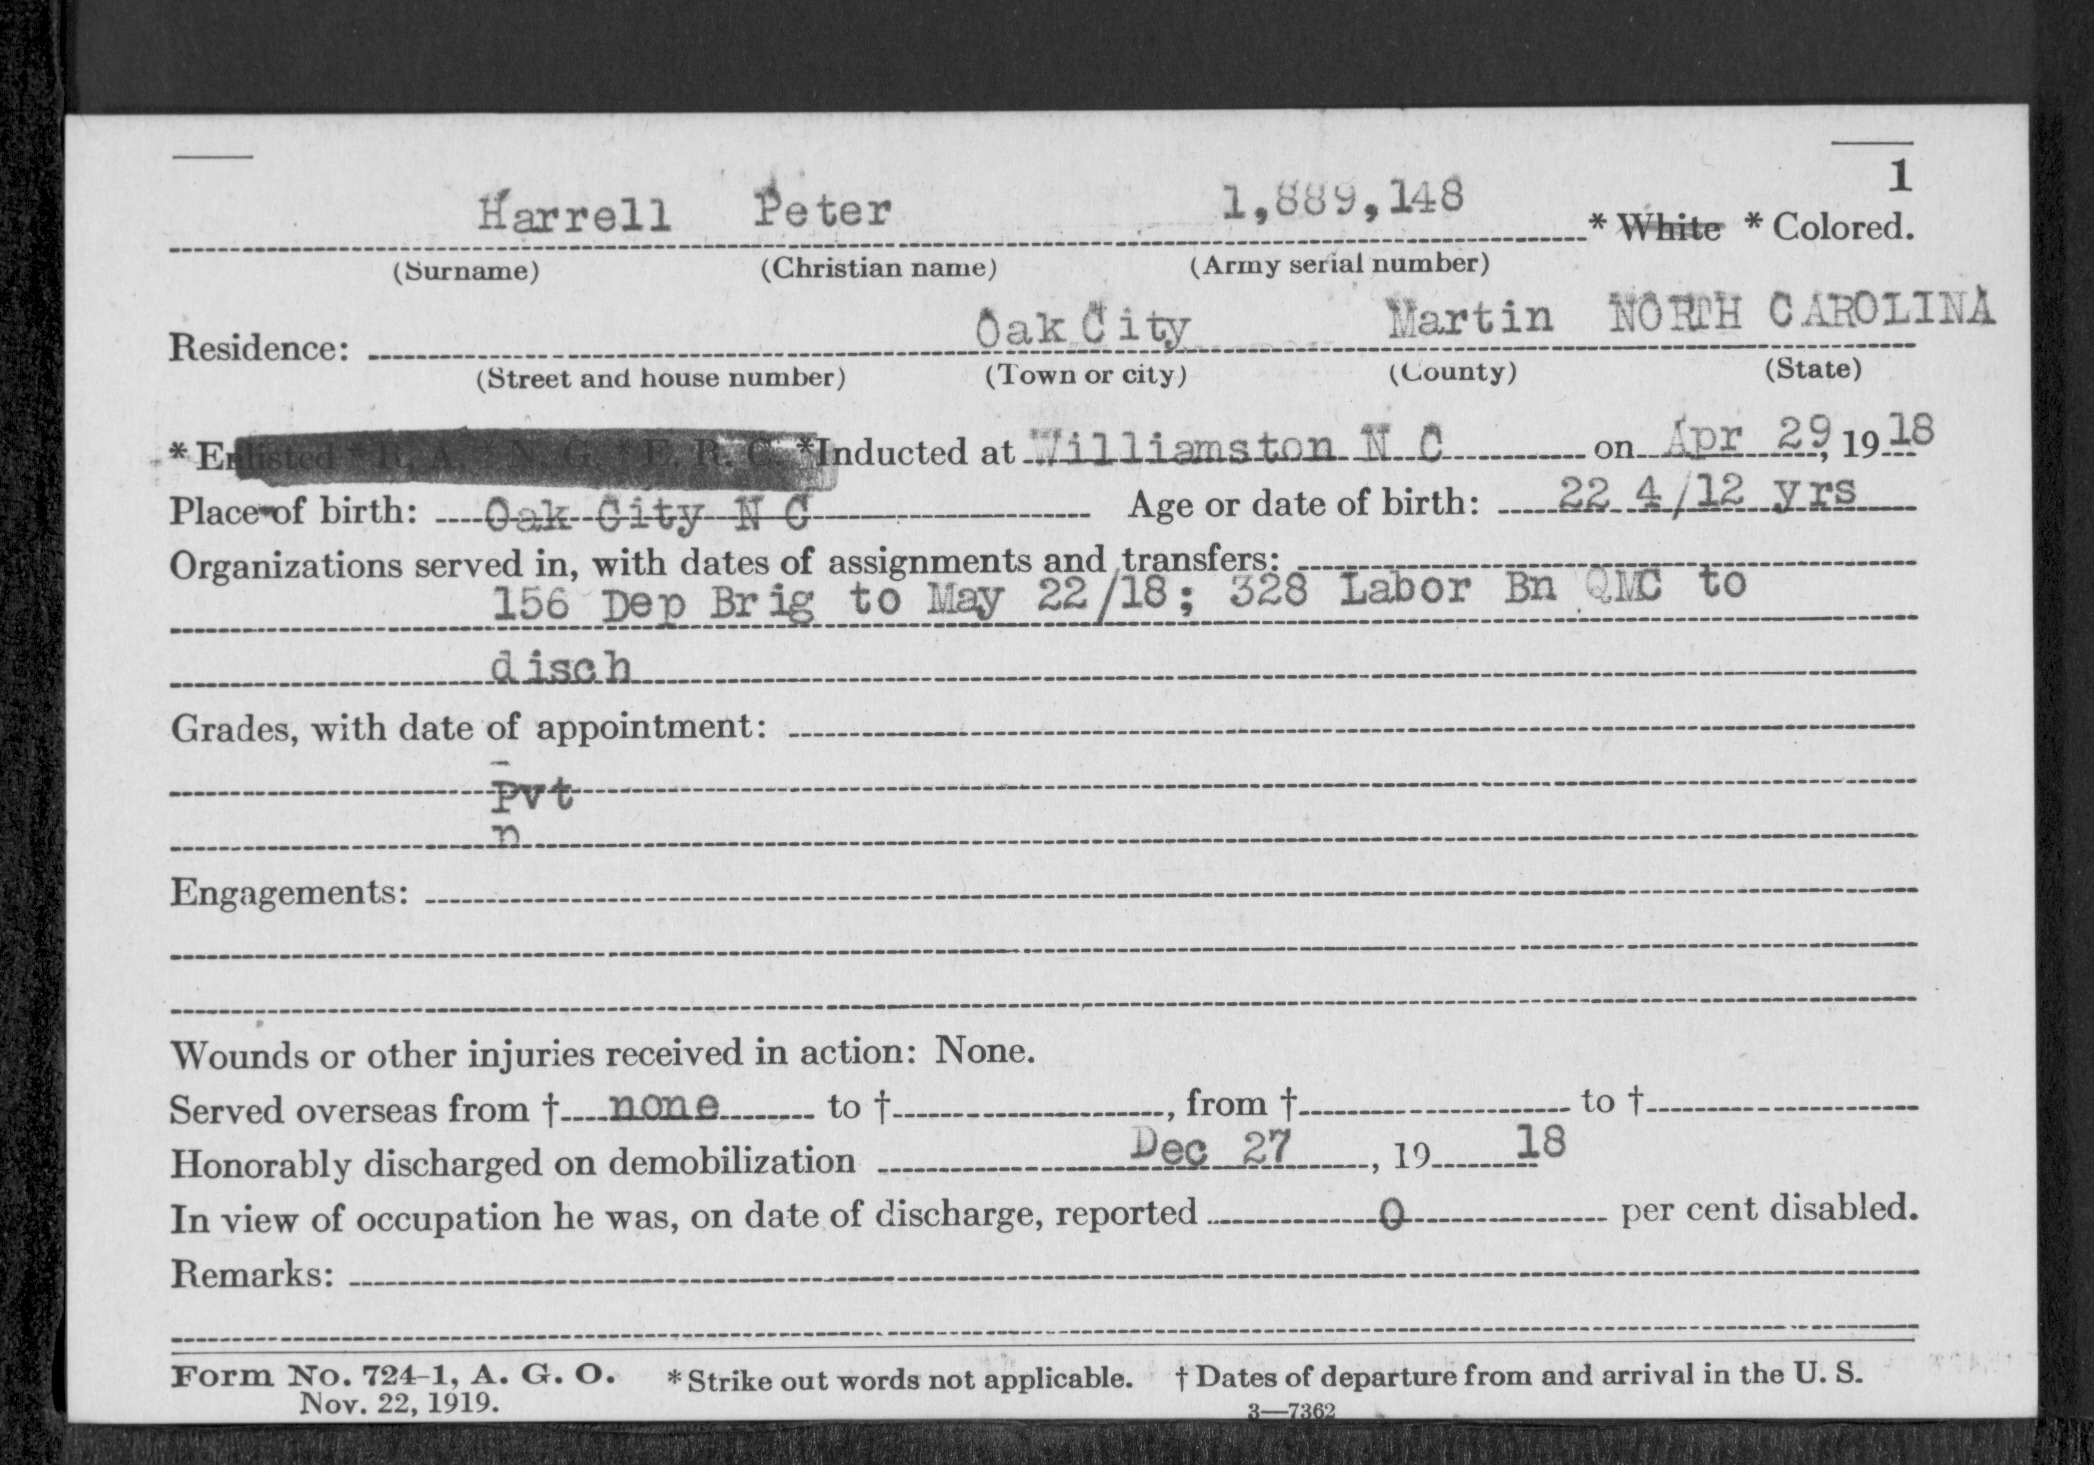 1
Harrell Peter 1,889,148 * White * Colored.
(Surname) (Christian name) (Army serial number)
Residence: Oak City Martin NORTH CAROLINA
(Street and house number) (Town or city) (County) (State)
* Enlisted * R. A. * N. G. * E. R. C. *Inducted at Williamston N C on Apr 29, 19 18
Place of birth: Oak City N C Age or date of birth: 22 4/12 yrs
Organizations served in, with dates of assignments and transfers:
156 Dep Brig to May 22/18; 328 Labor Bn QMC to
disch
Grades, with date of appointment:
Pvt
Engagements:
Wounds or other injuries received in action: None.
Served overseas from † none to †, from † to †
Honorably discharged on demobilization Dec 27, 19 18
In view of occupation he was, on date of discharge, reported 0 per cent disabled.
Remarks:
Form No. 724-1, A. G. O. * Strike out words not applicable. † Dates of departure from and arrival in the U. S.
Nov. 22, 1919. 3—7362